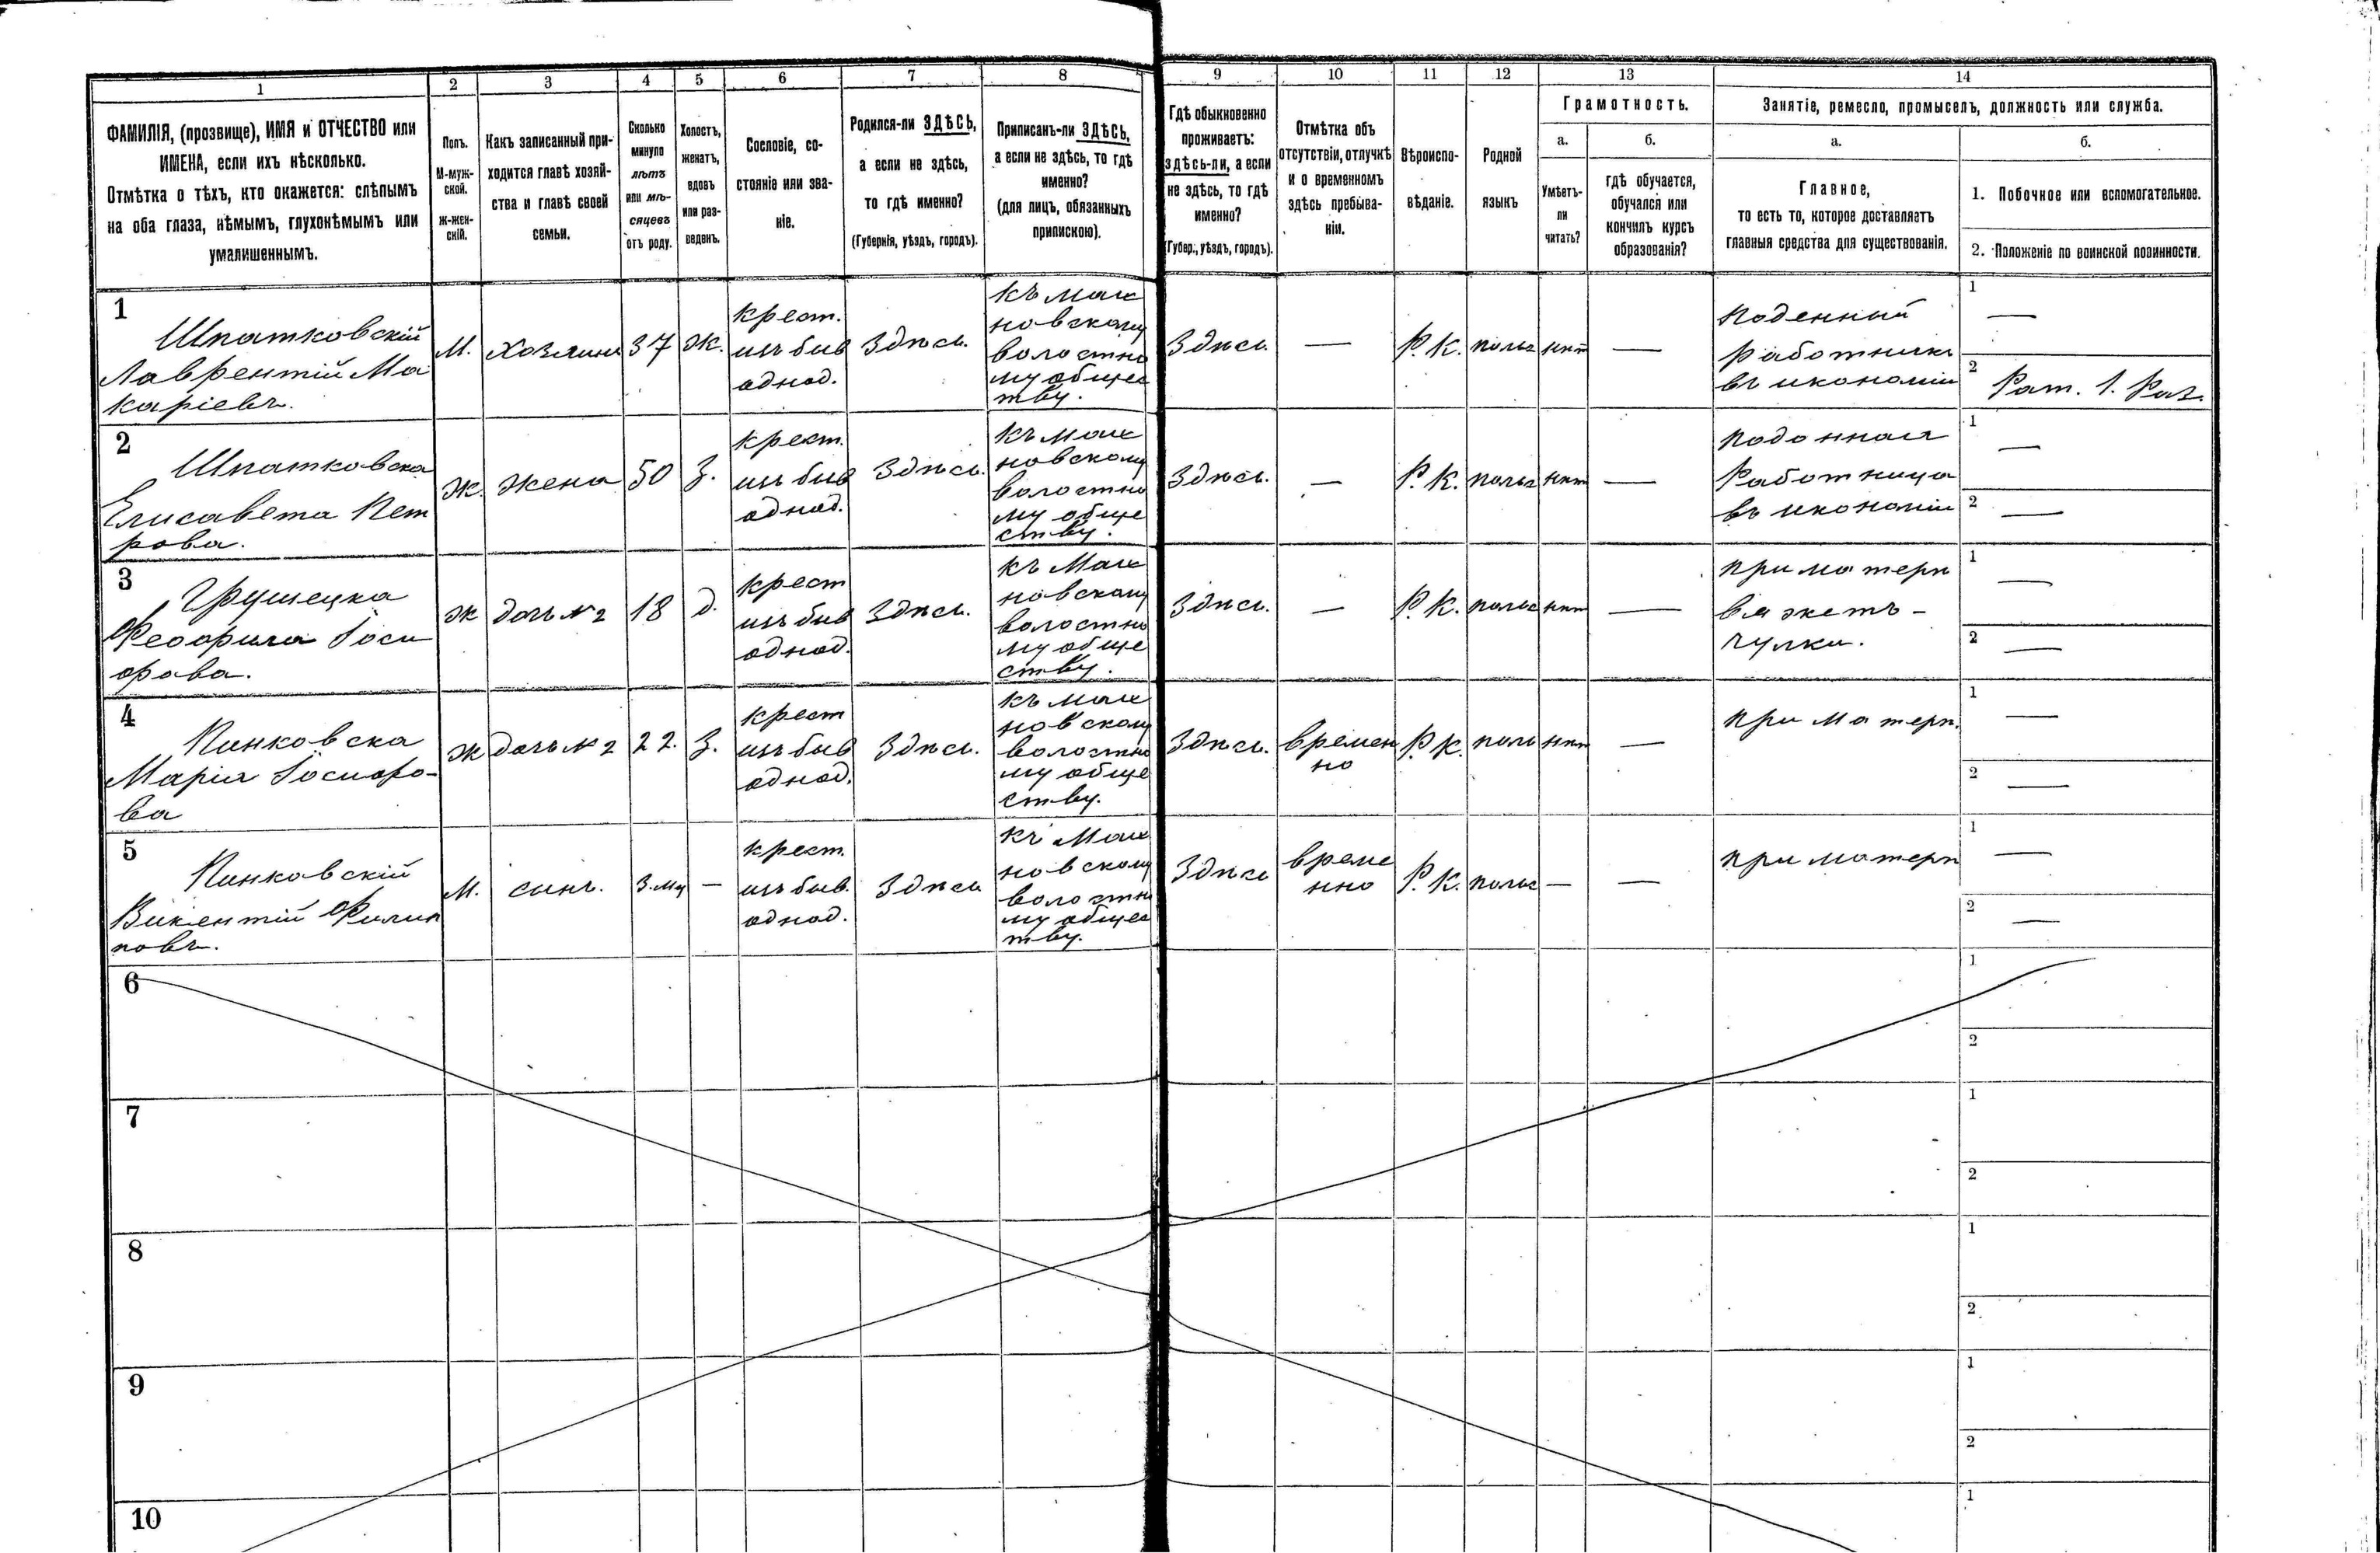 1
2
3
4
5
6
7
8
9
10
11
12
13
14
ФАМИЛІЯ, (прозвище), ИМЯ и ОТЧЕСТВО или
ИМЕНА, если ихъ нѣсколько.
Отмѣтка о тѣхъ, кто окажется: слѣпымъ
на оба глаза, нѣмымъ, глухонѣмымъ или
умалишеннымъ.
Полъ.
М-муж-
ской.
Ж-жен-
скій.
Какъ записанный при-
ходится главѣ хозяй-
ства и главѣ своей
семьи.
Сколько
минуло
лѣтъ
или мѣ-
сяцевъ
отъ роду.
Холостъ,
женатъ,
вдовъ
или раз-
веденъ.
Сословіе, со-
стояніе или зва-
ніе.
Родился-ли ЗДѢСЬ,
а если не здѣсь,
то гдѣ именно?
(Губернія, уѣздъ, городъ).
Приписанъ-ли ЗДѢСЬ,
а если не здѣсь, то гдѣ
именно?
(для лицъ, обязанныхъ
припискою).
Гдѣ обыкновенно
проживаетъ:
здѣсь-ли, а если
не здѣсь, то гдѣ
именно?
(Губер., уѣздъ, городъ).
Отмѣтка объ
отсутствіи, отлучкѣ
и о временномъ
здѣсь пребыва-
ніи.
Вѣроиспо-
вѣданіе.
Родной
языкъ
Грамотность.
а.
б.
Умѣетъ-
ли
читать?
гдѣ обучается,
обучался или
кончилъ курсъ
образованія?
Занятіе, ремесло, промыселъ, должность или служба.
а.
б.
Главное,
то есть то, которое доставляетъ
главныя средства для существованія.
1. Побочное или вспомогательное.
2. Положеніе по воинской повинности.
1
Шпатковскій
Лаврентій Ма
каріевъ.
М.
хозяинъ
37
Ж.
крест.
изъ быв
однод.
Здѣсь.
новскому
волостно
му общес
тву.
Здѣсь.
—
Р. К.
польс
нѣт
—
Поденный
работникъ
въ икономіи
1
—
2
Рат. 1. Раз.
2
Шпатковска
Елисавета Пет
рова.
Ж.
жена
50
З.
крест.
изъ быв
однод.
Здѣсь.
новскому
волостно
му обще
ству.
Здѣсь.
—
Р. К.
польс
нѣт
—
подонная
Работница
въ икономіи
1
—
2
—
3
Грушецка
Феофила Іоси
фова.
Ж
дочь № 2
18
д.
крест
изъ быв
однод.
Здѣсь.
новскому
волостно
му обще
ству.
Здѣсь.
—
Р. К.
польс
нѣт
—
при матери
вяжетъ -
чулки.
1
—
2
—
4
Пинковска
Марія Іосифо-
ва
Ж
дочь № 2
22.
З.
крест
изъ быв
однод.
Здѣсь.
новскому
волостно
му обще
ству.
Здѣсь.
времен
но
Р. К.
поль
нѣт
—
при матери.
1
—
2
—
5
Пинковскій
Викентій Филип
повъ.
М.
сынъ.
3. мц
—
крест.
изъ быв.
однод.
Здѣсь
новскому
волостно
му общес
тву.
Здѣсь
време
нно
Р. К.
польс
—
—
при матери
1
—
2
—
6
1
2
7
1
2
8
1
2
9
1
2
10
1